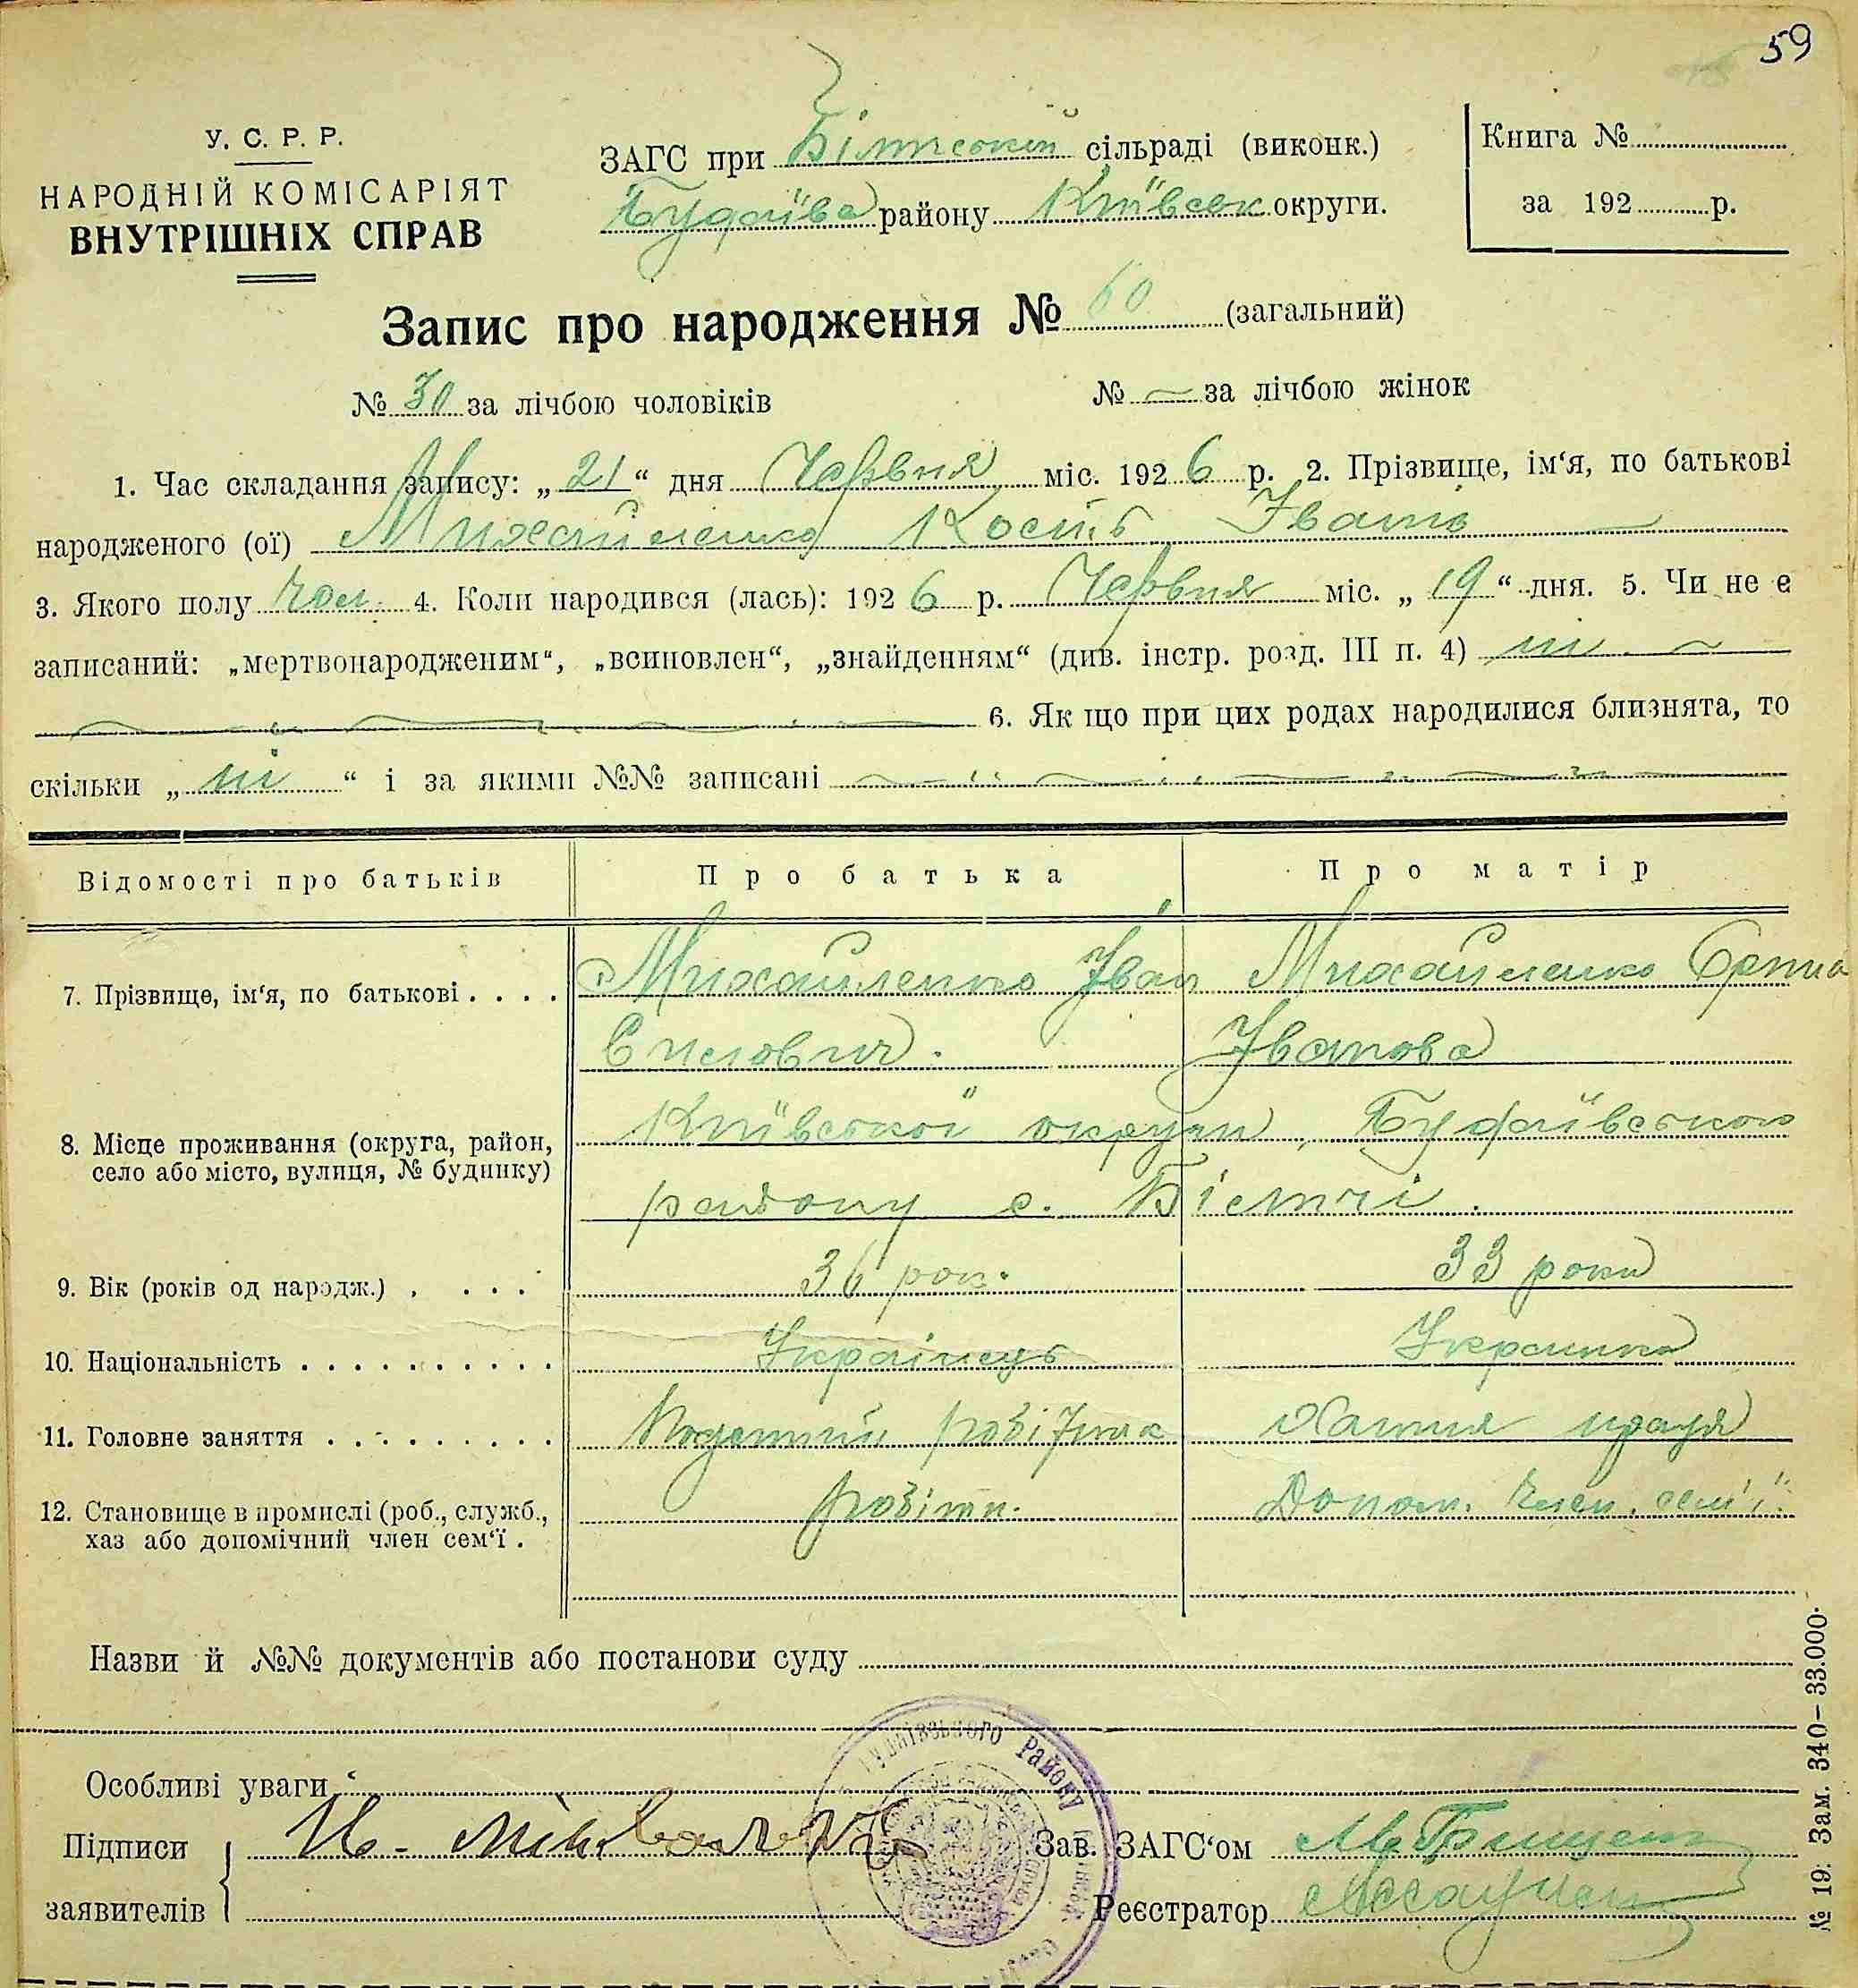 59
У. С. Р. Р.
НАРОДНІЙ КОМІСАРІЯТ
ВНУТРІШНІХ СПРАВ
ЗАГС при сільраді (виконк.)
Будаївс району Київськ округи.
Книга №
за 192 р.
Запис про народження № 60 (загальний)
№ 30 за лічбою чоловіків № — за лічбою жінок
1. Час складання запису: „ 21 “ дня Червня міс. 192 6 р. 2. Прізвище, ім‘я, по батькові
народженого (ої) Михайленко Кость Іванів
3. Якого полу чол. 4. Коли народився (лась): 192 6 р. Червня міс. „ 19 “ дня. 5. Чи не є
записаний: „мертвонародженим“, „всиновлен“, „знайденням“ (див. інстр. розд. III п. 4) ні.
6. Як що при цих родах народилися близнята, то
скільки „ ні “ і за якими №№ записані
Відомості про батьків Про батька Про матір
7. Прізвище, ім‘я, по батькові . . . . Михайленко Іван Михайленко
Силович. Іванова
8. Місце проживання (округа, район, Київської округи, Будаївського
село або місто, вулиця, № будинку) району с.
9. Вік (років од народж.) . . . . 36 рок. 33 роки
10. Національність . . . . . . . . . . Українець Украинка
11. Головне заняття . . . . . . . . . Поденний робітник Хатня праця
12. Становище в промислі (роб., служб., робітн. Допом. член. сем'ї.
хаз або допомічний член сем‘ї .
Назви й №№ документів або постанови суду
Особливі уваги
Підписи
заявителів
Зав. ЗАГС‘ом
Реєстратор
РАЙОНУ
№ 19. Зам. 340–33.000.